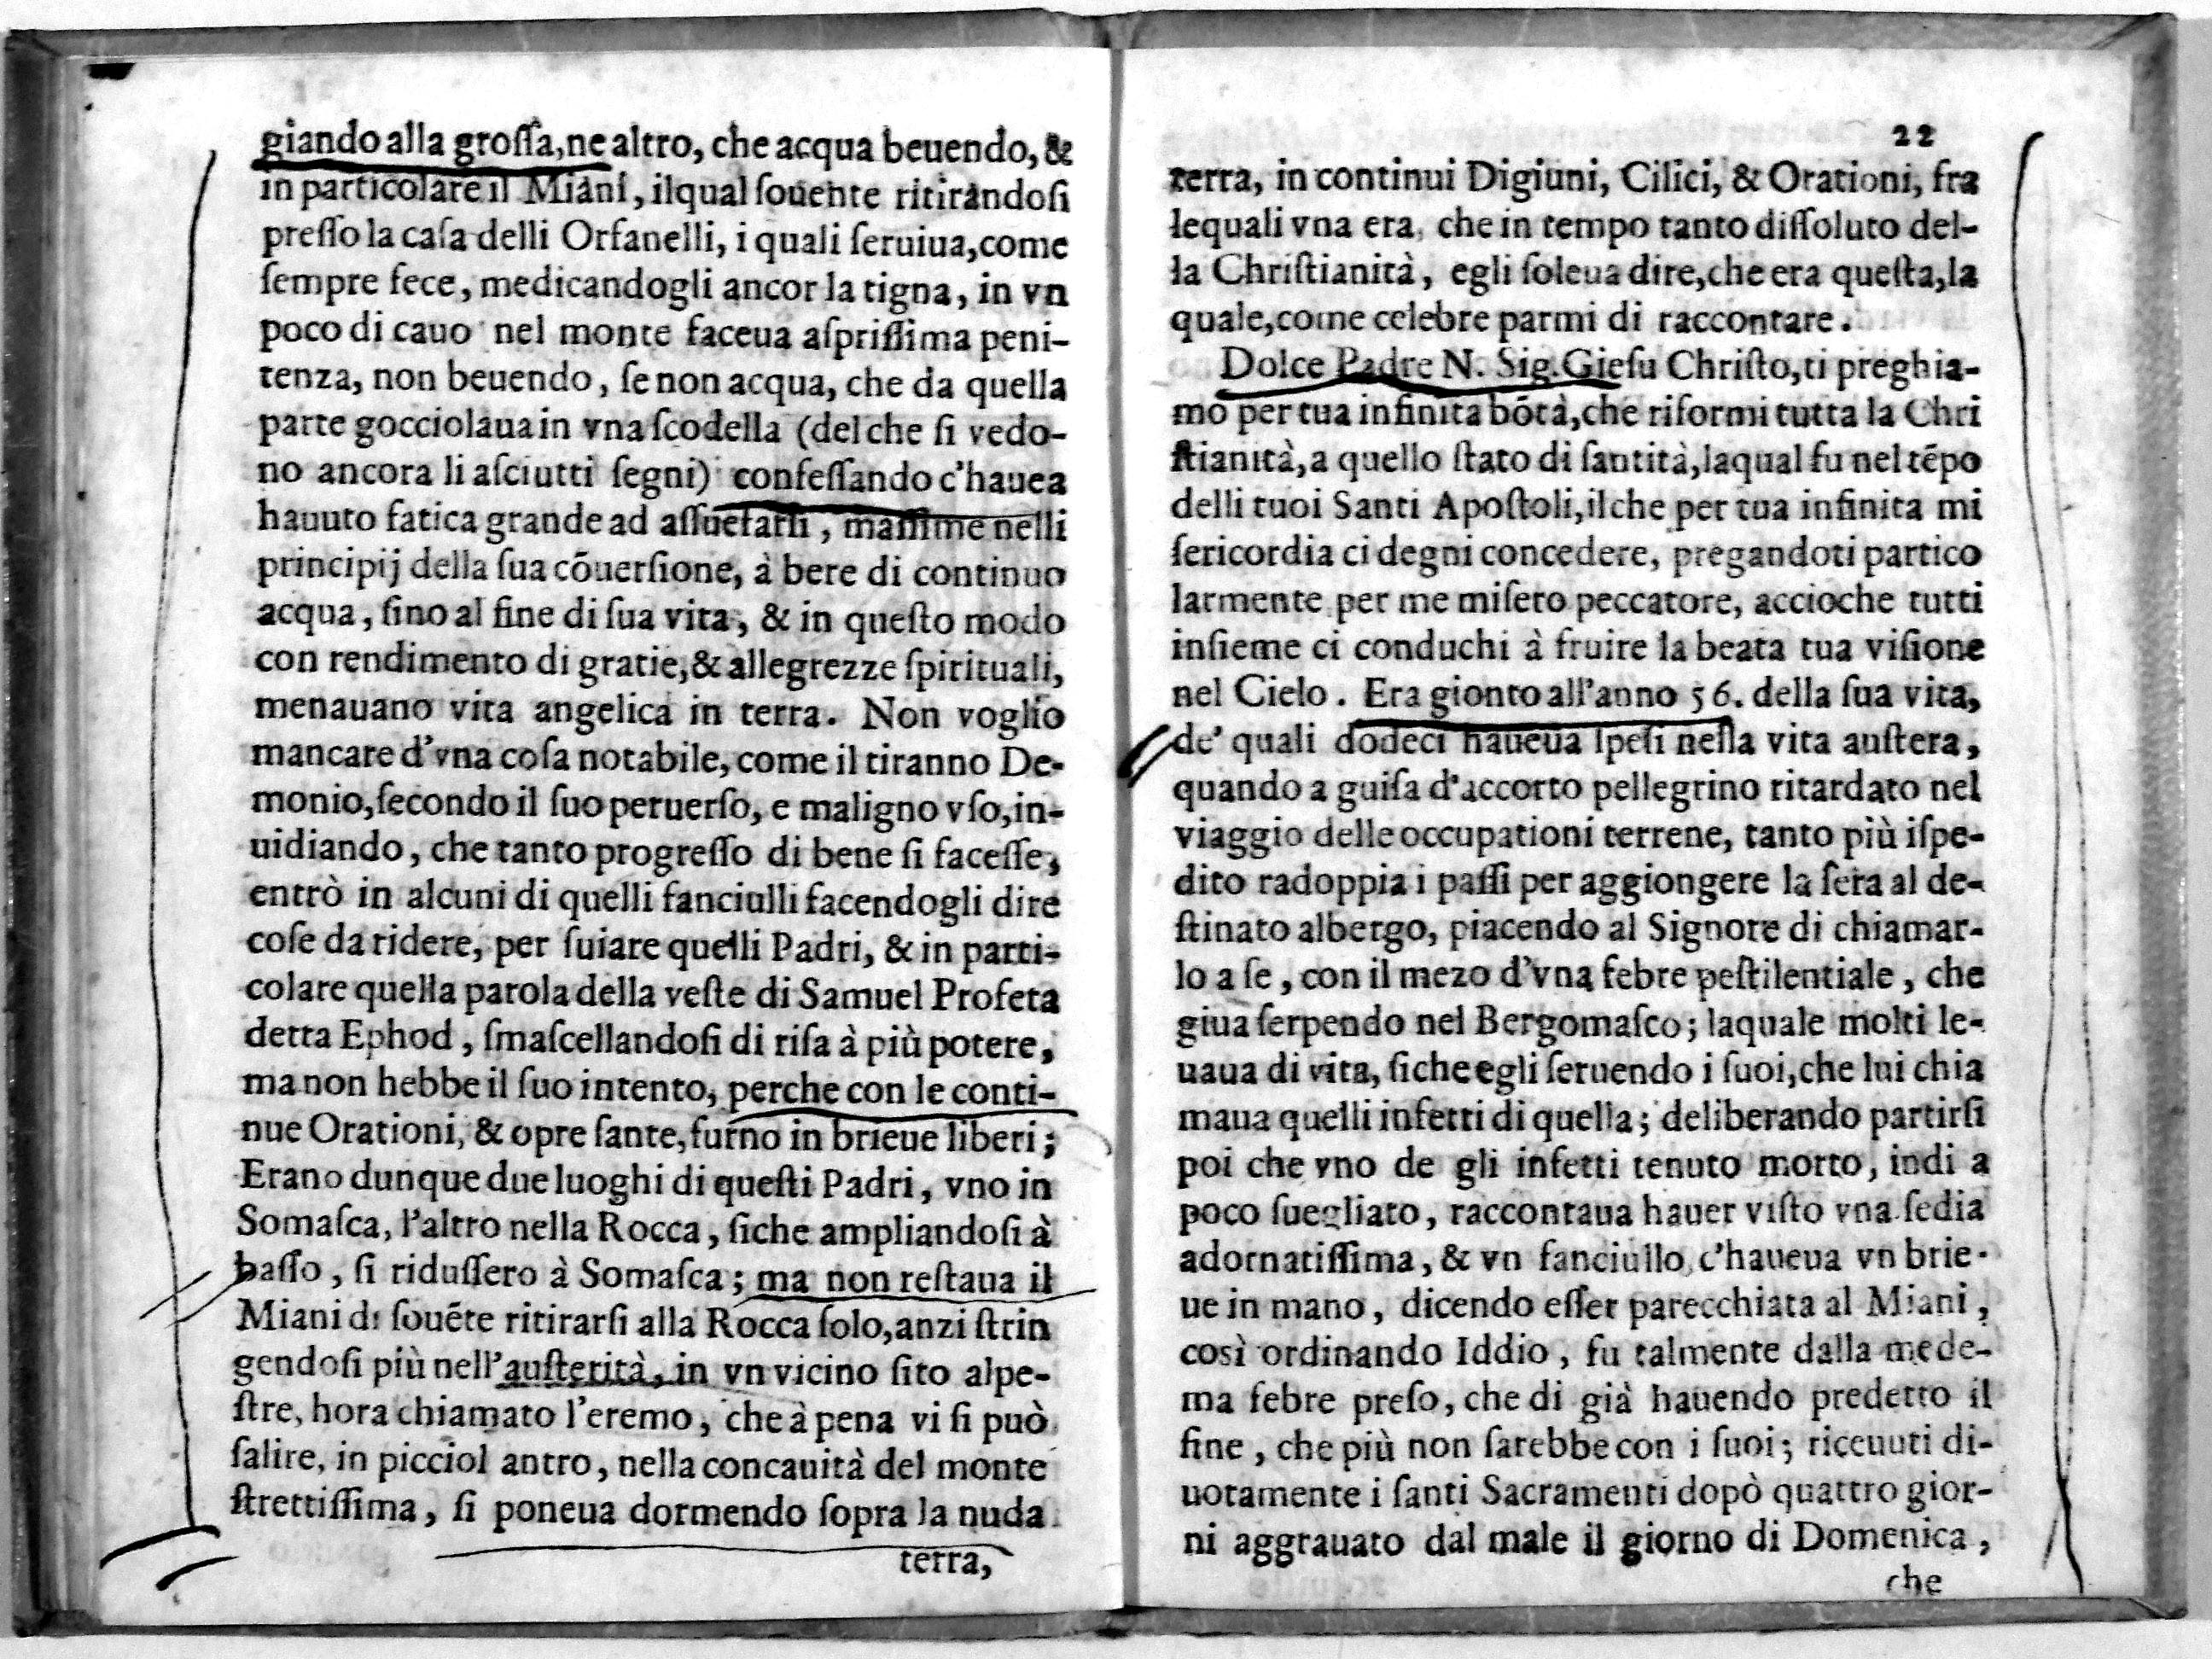 giando alla groſſa, ne altro, che acqua beuendo, &
in particolare il Miani, ilqual ſouente ritirandoſi
preſſo la caſa delli Orfanelli, i quali ſeruiua, come
ſempre fece, medicandogli ancor la tigna, in vn
poco di cauo nel monte faceua aſpriſſima peni-
tenza, non beuendo, ſe non acqua, che da quella
parte gocciolaua in vna ſcodella (del che ſi vedo-
no ancora li aſciutti ſegni) confeſſando c'hauea
hauuto fatica grande ad aſſuefarſi, maſſime nelli
principij della ſua cōuerſione, à bere di continuo
acqua, ſino al fine di ſua vita, & in queſto modo
con rendimento di gratie, & allegrezze ſpirituali,
menauano vita angelica in terra. Non voglio
mancare d'vna coſa notabile, come il tiranno De-
monio, ſecondo il ſuo peruerſo, e maligno vſo, in-
uidiando, che tanto progreſſo di bene ſi faceſſe,
entrò in alcuni di quelli fanciulli facendogli dire
coſe da ridere, per ſuiare quelli Padri, & in parti-
colare quella parola della veſte di Samuel Profeta
detta Ephod, ſmaſcellandoſi di riſa à più potere,
ma non hebbe il ſuo intento, perche con le conti-
nue Orationi, & opre ſante, furno in brieue liberi;
Erano dunque due luoghi di queſti Padri, vno in
Somaſca, l'altro nella Rocca, ſiche ampliandoſi à
baſſo, ſi riduſſero à Somaſca; ma non reſtaua il
Miani di ſouēte ritirarſi alla Rocca ſolo, anzi ſtrin
gendoſi più nell'auſterità, in vn vicino ſito alpe-
ſtre, hora chiamato l'eremo, che à pena vi ſi può
ſalire, in picciol antro, nella concauità del monte
ſtrettiſſima, ſi poneua dormendo ſopra la nuda
terra,
22
terra, in continui Digiuni, Cilici, & Orationi, fra
lequali vna era, che in tempo tanto diſſoluto del-
la Chriſtianità, egli ſoleua dire, che era queſta, la
quale, come celebre parmi di raccontare.
Dolce Padre N. Sig. Gieſu Chriſto, ti preghia-
mo per tua infinita bōtà, che riformi tutta la Chri
ſtianità, a quello ſtato di ſantità, laqual fu nel tēpo
delli tuoi Santi Apoſtoli, ilche per tua infinita mi
ſericordia ci degni concedere, pregandoti partico
larmente per me miſero peccatore, accioche tutti
inſieme ci conduchi à fruire la beata tua viſione
nel Cielo. Era gionto all'anno 56. della ſua vita,
de' quali dodeci haueua ſpeſi nella vita auſtera,
quando a guiſa d'accorto pellegrino ritardato nel
viaggio delle occupationi terrene, tanto più iſpe-
dito radoppia i paſſi per aggiongere la ſera al de-
ſtinato albergo, piacendo al Signore di chiamar-
lo a ſe, con il mezo d'vna febre peſtilentiale, che
giua ſerpendo nel Bergomaſco; laquale molti le-
uaua di vita, ſiche egli ſeruendo i ſuoi, che lui chia
maua quelli infetti di quella; deliberando partirſi
poi che vno de gli infetti tenuto morto, indi a
poco ſuegliato, raccontaua hauer viſto vna ſedia
adornatiſſima, & vn fanciullo, c'haueua vn brie-
ue in mano, dicendo eſſer parecchiata al Miani,
così ordinando Iddio, fu talmente dalla mede-
ma febre preſo, che di già hauendo predetto il
fine, che più non ſarebbe con i ſuoi; riceuuti di-
uotamente i ſanti Sacramenti dopò quattro gior-
ni aggrauato dal male il giorno di Domenica,
che